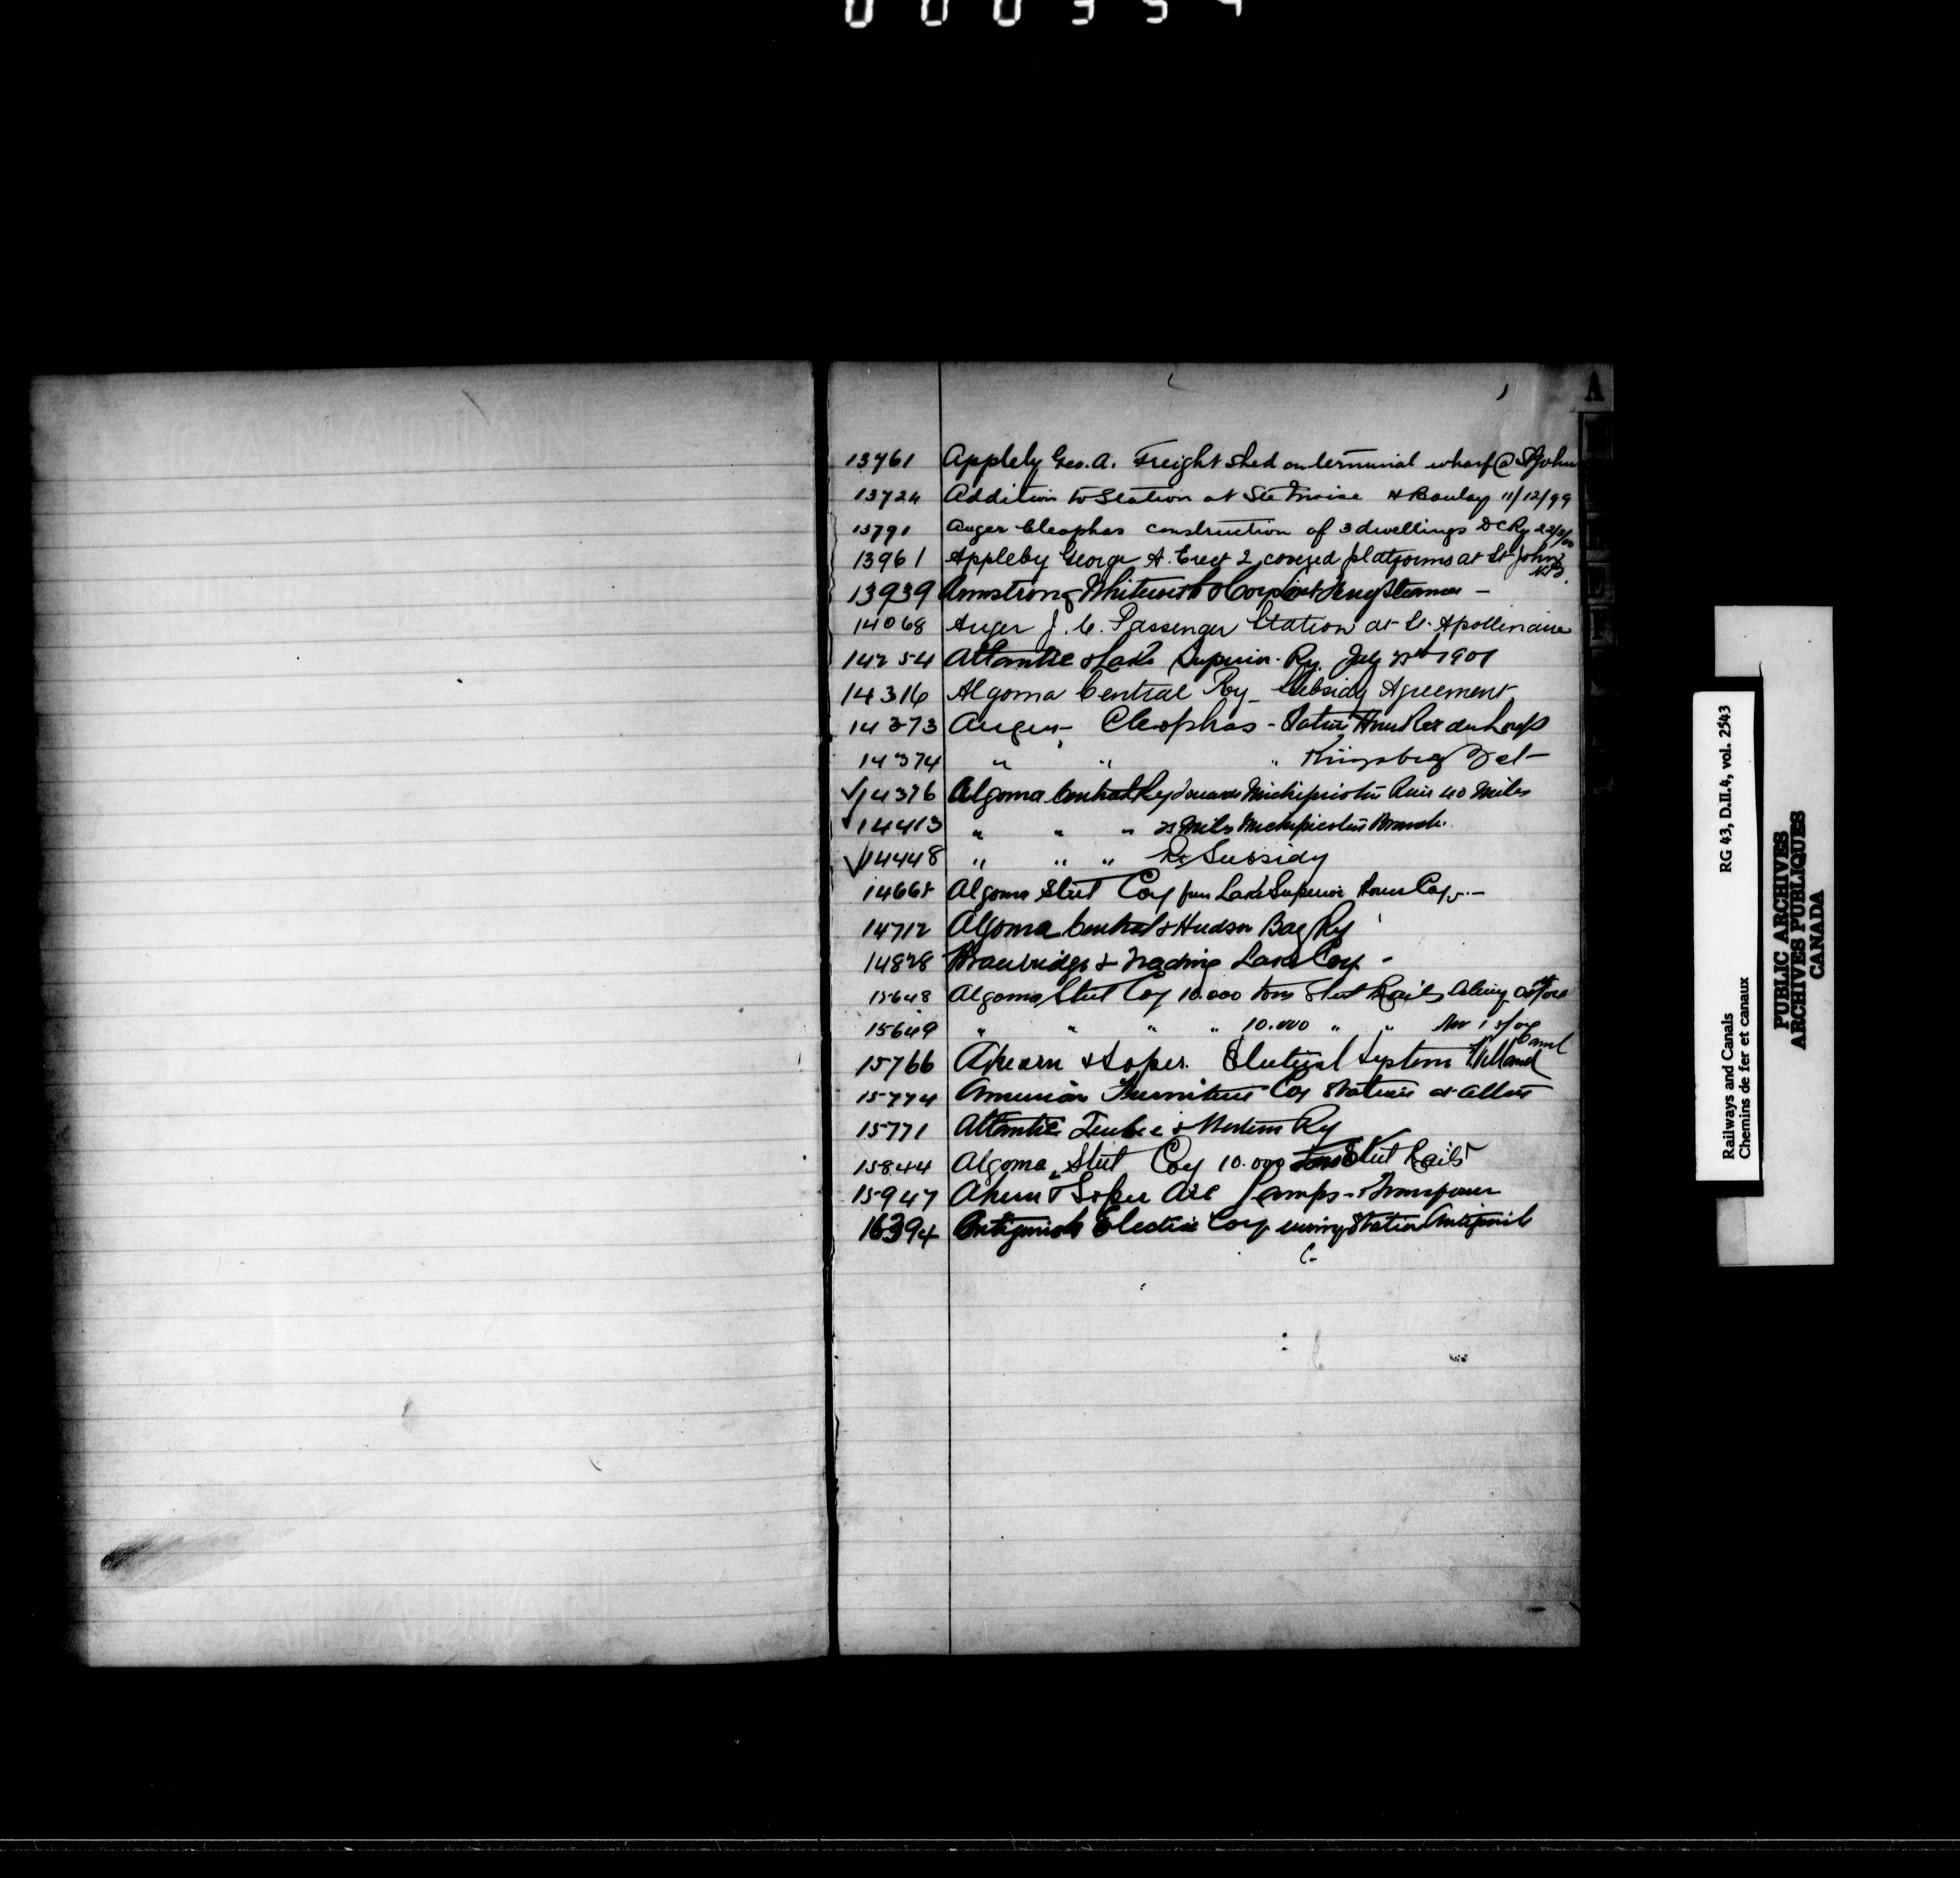 1
A
13761 Appleby Geo. A. Freight shed on terminal wharf @ St John
13724 Addition to Station at Ste Moise H Boulay 11/12/99
13791 Auger Cleophas construction of 3 dwellings D C Ry 22/3/00
13961 Appleby George A. Erect 2 covered platforms at St John N.B.
13939 Armstrong Whitworth & Coy
14068 Auger J. C. Passenger Station at St. Apollinaire
14254 Atlantic & Lake Superior Ry. July 1901
14316 Algoma Central Ry Subsidy Agreement
14373 Auger Cleophas - Station House Riv du Loup
14374 " " " Kingsbog
14376 Algoma Central Ry towards Michipicoten River 40 Miles
14413 " " " 25 Miles Michipicoten Branch.
14448 " " " Re Subsidy
14668 Algoma Steel Coy from Lake Superior Power Coy. -
14712 Algoma Central & Hudson Bay Ry
14828 Bracebridge & Trading Lake Coy -
15648 Algoma Steel Coy 10.000 tons Steel Rails
15649 " " " " 10.000 " "
15766 Ahearn & Soper. Electrical System Welland Canal
15774 American Furniture Coy
15771 Atlantic Quebec & Western Ry
15844 Algoma Steel Coy 10.000 tons Steel Rails
15947 Ahearn & Soper Arc Lamps - Transformers
16394 Antigonish Electric Coy wiring Station Antigonish
Railways and Canals RG 43, D.II.4, vol. 2543
Chemins de fer et canaux
PUBLIC ARCHIVES
ARCHIVES PUBLIQUES
CANADA